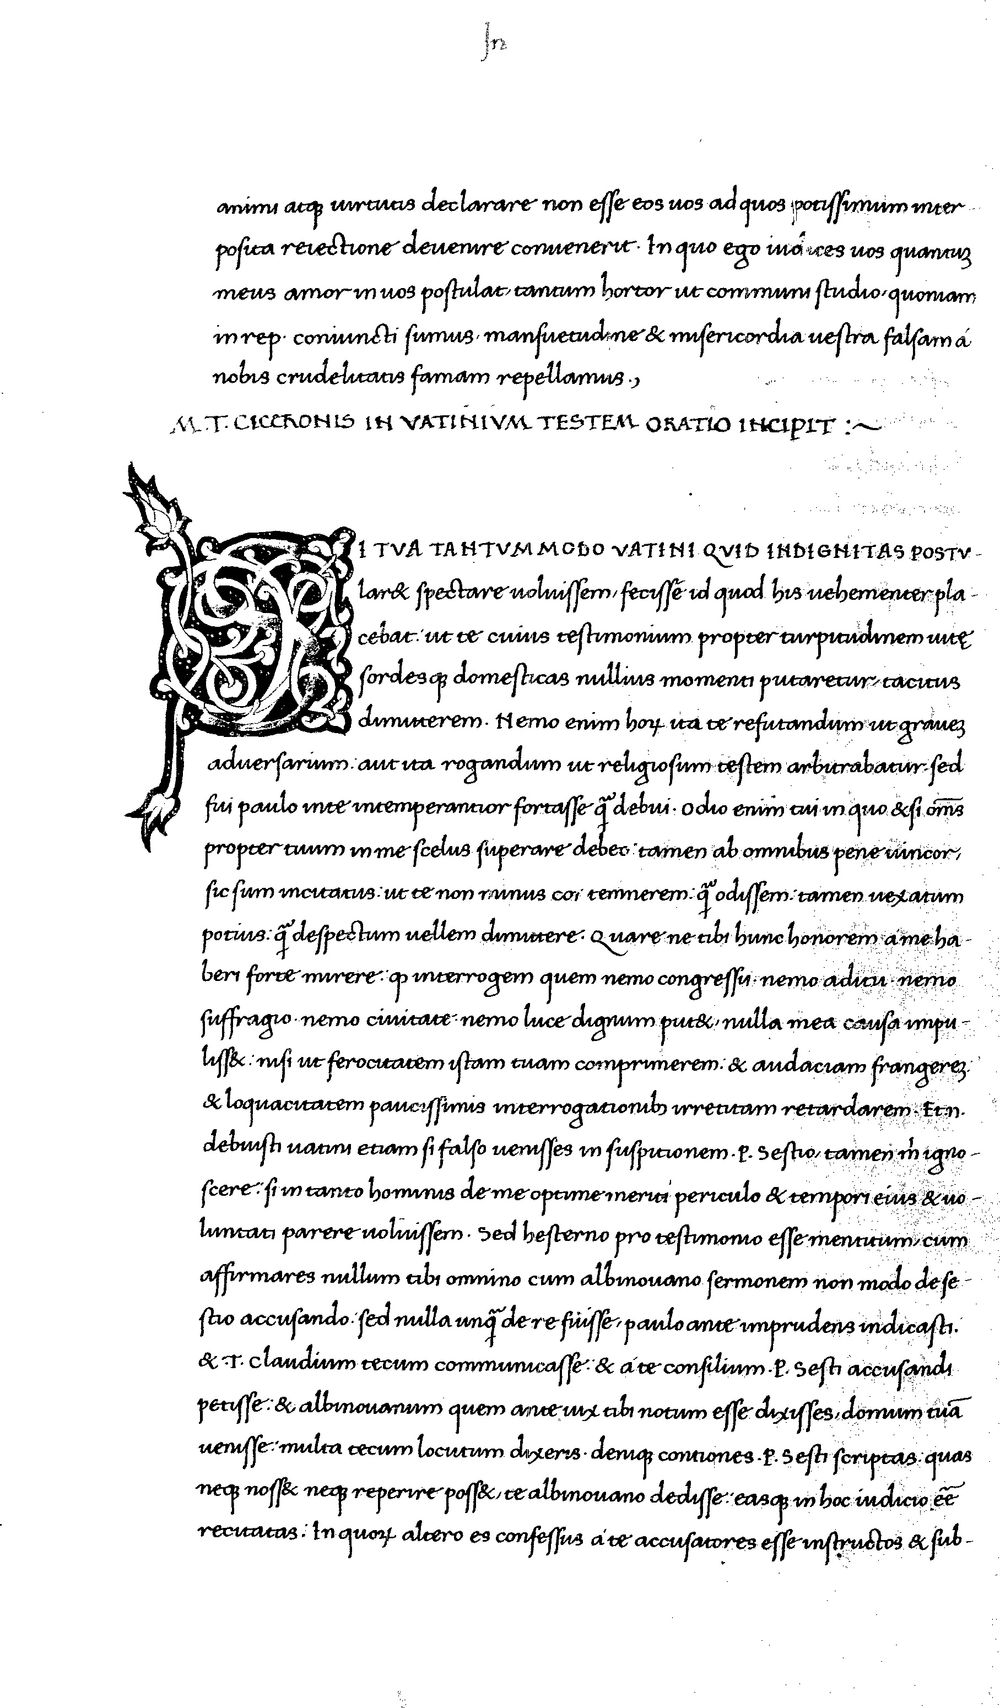 In
animi atq; uirtutis declarare non esse eos uos ad quos potissimum inter
posita reiectione deuenire conuenerit. In quo ego iudices uos quantuꝫ
meus amor in uos postulat, tantum hortor ut communi studio, quoniam
in rep. coniuncti sumus, mansuetudine & misericordia uestra falsam á
nobis crudelitatis famam repellamus.,
M. T. CICERONIS IN VATINIVM TESTEM ORATIO INCIPIT :~
SI TVA TANTVM MODO VATINI QVID INDIGNITAS POSTV-
lar& spectare uoluissem, fecissē id quod his uehementer pla-
cebat: ut te cuius testimonium propter turpitudinem uitę
sordesq; domesticas nullius momenti putaretur, tacitus
dimitterem. Nemo enim hoꝝ ita te refutandum ut graueꝫ
aduersarium: aut ita rogandum ut religiosum testem arbitrabatur. sed
fui paulo inte intemperantior fortasse q̄ debui. Odio enim tui in quo &si om̄s
propter tuum in me scelus superare debeo: tamen ab omnibus pene uincor,
sic sum incitatus: ut te non minus con temnerem: q̄ odissem: tamen uexatum
potius: q̄ despectum uellem dimittere. Quare ne tibi hunc honorem a me ha-
beri forte mirere: ꝙ interrogem quem nemo congressu. nemo aditu. nemo
suffragio. nemo ciuitate. nemo luce dignum put&, nulla mea causa impu-
liss&: nisi ut ferocitatem istam tuam comprimerem: & audaciam frangereꝫ:
& loquacitatem paucissimis interrogationib; irretitam retardarem. Et.n.
debuisti uatini etiam si falso uenisses in suspitionem .P. Sestio, tamen m̄ igno-
scere: si in tanto hominis de me optime meriti periculo & tempori eius & uo-
luntati parere uoluissem. Sed hesterno pro testimonio esse mentitum, cum
affirmares nullum tibi omnino cum albinouano sermonem non modo de se-
stio accusando: sed nulla unq̄ de re fuisse, paulo ante imprudens indicasti.
& .T. Claudium tecum communicasse: & a te consilium .P. Sesti accusandi
petisse: & albinouanum quem ante uix tibi notum esse dixisses, domum tuā
uenisse: multa tecum locutum dixeris. deniq; contiones .P. Sesti scriptas: quas
neq; noss& neq; reperire poss&, te albinouano dedisse: easq; in hoc iudicio eē
recitatas: In quoꝝ altero es confessus a te accusatores esse instructos & sub-